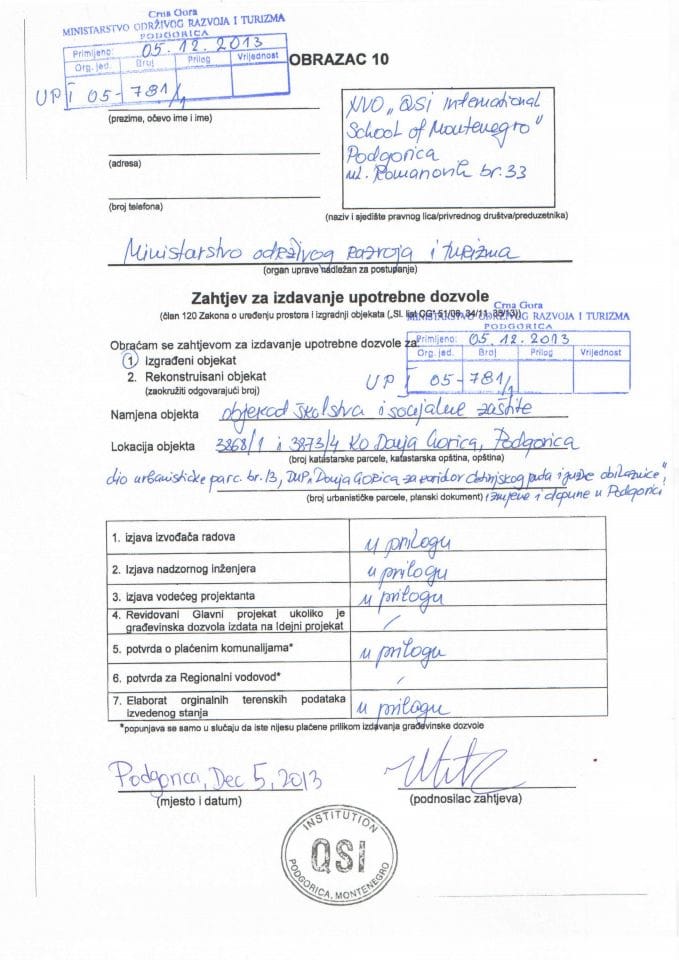 Crna Gora
MINISTARSTVO ODRŽIVOG RAZVOJA I TURIZMA
PODGORICA
Primljeno: 05. 12. 2013
Org. jed. Broj Prilog Vrijednost
UPI 05-781/1
OBRAZAC 10
(prezime, očevo ime i ime)
(adresa)
(broj telefona)
NVO „QSI International
School of Montenegro"
Podgorica
ul. Romanovih br. 33
(naziv i sjedište pravnog lica/privrednog društva/preduzetnika)
Ministarstvo održivog razvoja i turizma
(organ uprave nadležan za postupanje)
Zahtjev za izdavanje upotrebne dozvole
(član 120 Zakona o uređenju prostora i izgradnji objekata („Sl. list CG" 51/08, 34/11, 35/13))
Crna Gora
MINISTARSTVO ODRŽIVOG RAZVOJA I TURIZMA
PODGORICA
Primljeno: 05. 12. 2013
Org. jed. Broj Prilog Vrijednost
UPI 05-781/1
Obraćam se zahtjevom za izdavanje upotrebne dozvole za:
1. Izgrađeni objekat
2. Rekonstruisani objekat
(zaokružiti odgovarajući broj)
Namjena objekta objekat školstva i socijalne zaštite
Lokacija objekta 3868/1 i 3873/4 KO Donja Gorica, Podgorica
(broj katastarske parcele, katastarska opština, opština)
dio urbanističke parc. br. 13, DUP „Donja Gorica za koridor cetinjskog puta i južne obilaznice",
(broj urbanističke parcele, planski dokument) izmjene i dopune u Podgorici
1. izjava izvođača radova u prilogu
2. Izjava nadzornog inženjera u prilogu
3. izjava vodećeg projektanta u prilogu
4. Revidovani Glavni projekat ukoliko je
građevinska dozvola izdata na Idejni projekat /
5. potvrda o plaćenim komunalijama* u prilogu
6. potvrda za Regionalni vodovod* /
7. Elaborat orginalnih terenskih podataka
izvedenog stanja u prilogu
*popunjava se samo u slučaju da iste nijesu plaćene prilikom izdavanja građevinske dozvole
Podgorica, Dec 5, 2013
(mjesto i datum)
(podnosilac zahtjeva)
INSTITUTION
QSI
PODGORICA, MONTENEGRO